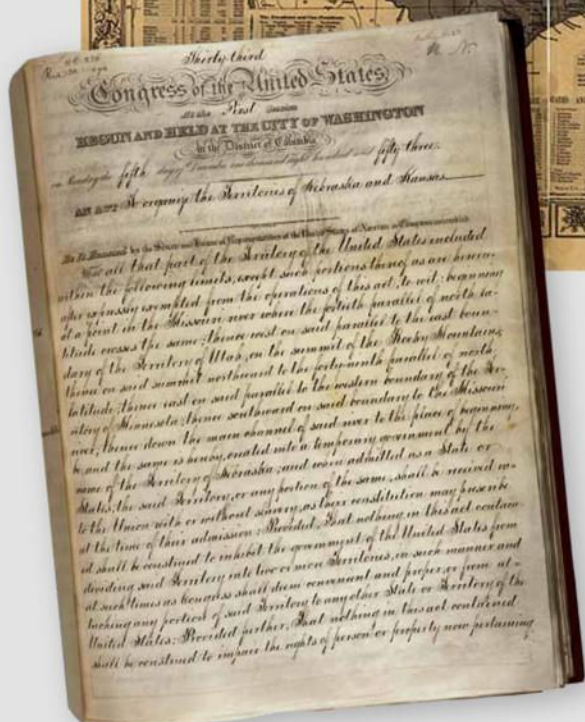 Thirty-third
Congress of the United States,
At the First Session
BEGUN AND HELD AT THE CITY OF WASHINGTON
in the District of Columbia
on Monday the fifth day of December one thousand eight hundred and fifty three.
AN ACT To organize the Territories of Nebraska and Kansas.
Be It Enacted by the Senate and House of Representatives of the United States of America in Congress assembled
That all that part of the Territory of the United States included
within the following limits, except such portions thereof as are herein-
after expressly exempted from the operations of this act, to wit: beginning
at a point in the Missouri river where the fortieth parallel of north la-
titude crosses the same; thence west on said parallel to the east boun-
dary of the Territory of Utah, on the summit of the Rocky Mountains;
thence on said summit northward to the forty-ninth parallel of north
latitude; thence east on said parallel to the western boundary of the Ter-
ritory of Minnesota; thence southward on said boundary to the Missouri
river; thence down the main channel of said river to the place of beginning,
be, and the same is hereby, created into a temporary government by the
name of the Territory of Nebraska; and when admitted as a State or
States, the said Territory, or any portion of the same, shall be received in-
to the Union with or without slavery, as their constitution may prescribe
at the time of their admission: Provided, That nothing in this act contain-
ed shall be construed to inhibit the government of the United States from
dividing said Territory into two or more Territories, in such manner and
at such times as Congress shall deem convenient and proper, or from at-
taching any portion of said Territory to any other State or Territory of the
United States: Provided further, That nothing in this act contained
shall be construed to impair the rights of person or property now pertaining